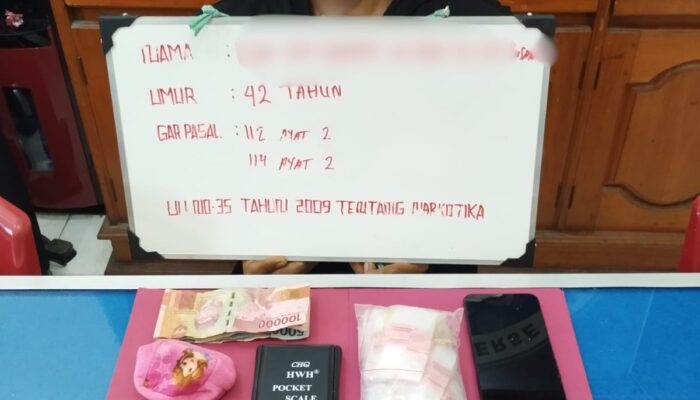 NAMA :
UMUR : 42 TAHUN
GAR PASAL : 112 AYAT 2
114 AYAT 2
UU NO.35 TAHUN 2009 TENTANG NARKOTIKA
100000
CHQ
HWH®
POCKET
SCALE
ERSE